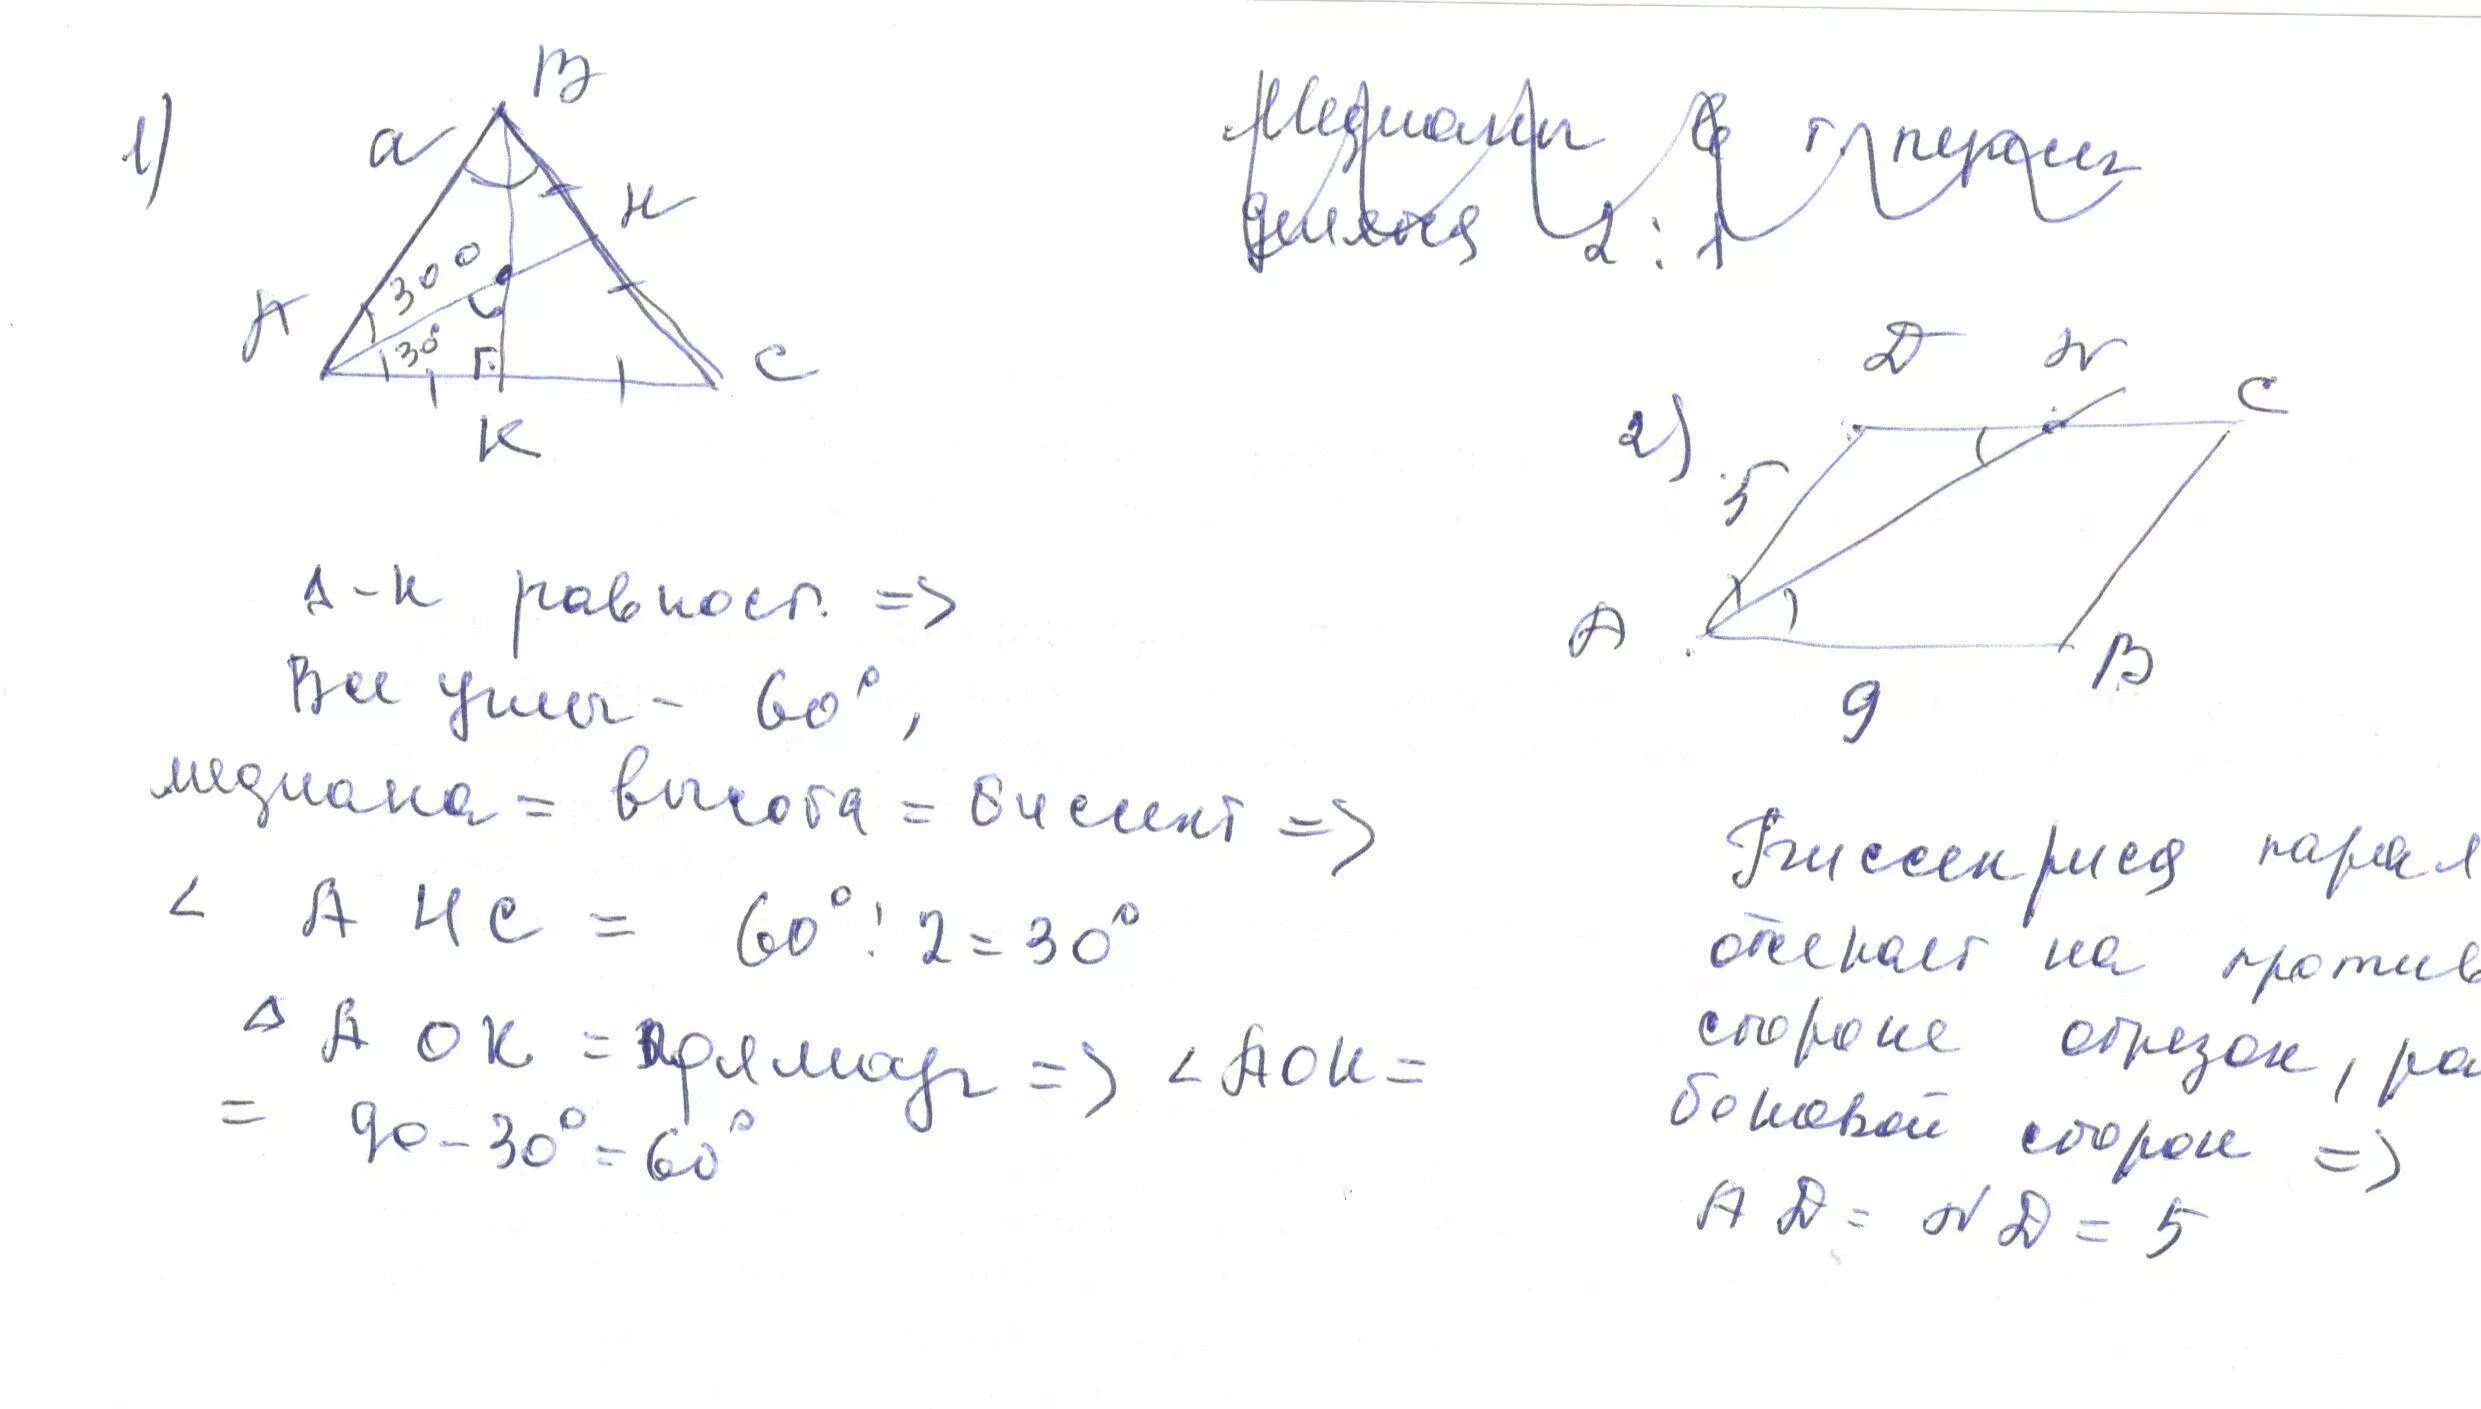 1)
B
a
H
A
30°
30°
C
K
Δ-к равност. =>
Все углы - 60°,
медиана = высота = биссект =>
< А Н С = 60° : 2 = 30°
Δ А О К = прямоуг => < АОК =
= 90 - 30° = 60°
Медианы в т. пересеч
делятся 2 : 1
2)
D N
C
5
A
B
9
Биссектриса парал
отсекает на против
стороне отрезок, ра
боковой сторон =>
А D = N D = 5